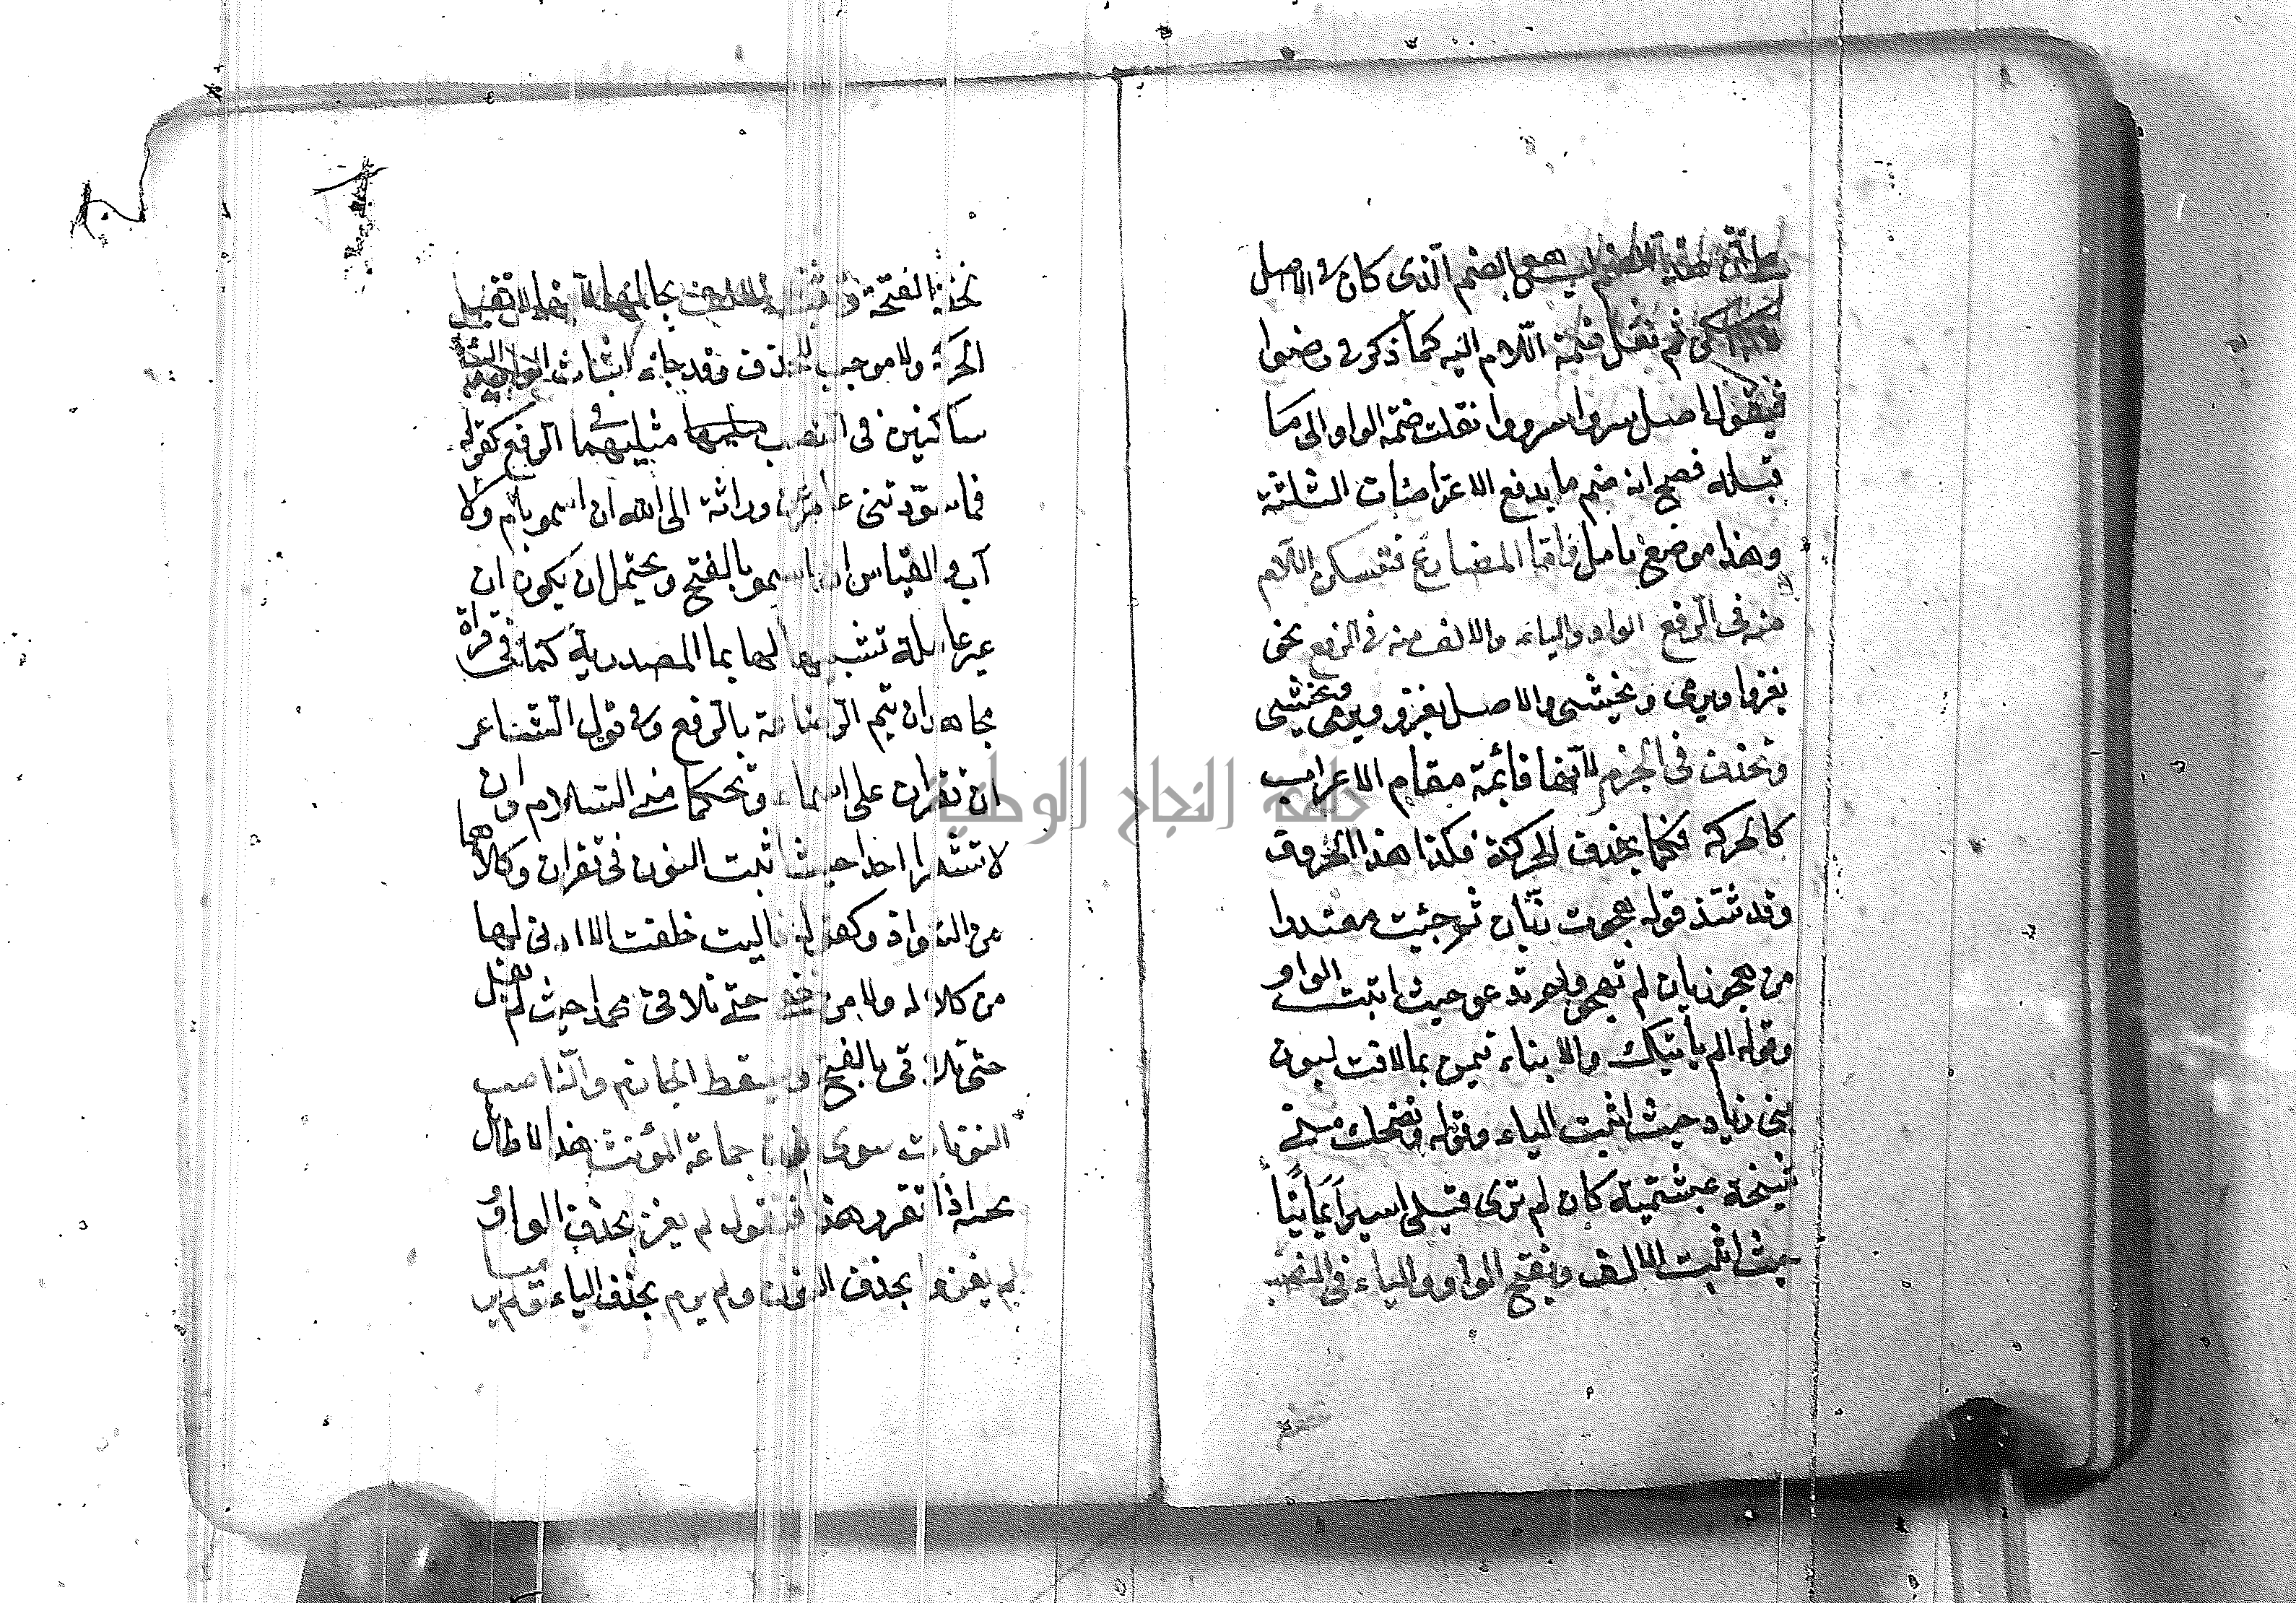 الضم الذى كان فى الاصل
ثم تنقل ضمة اللام اليه كما ذكر فى رضوا
فيقول اصل سروا سرووا نقلت ضمة الواو الى ما
قبله فصح ان ضم ما يدفع الاعتراضات الثلثة
وهذا موضع تامل فاما المضارع فتسكن اللام
منه فى الرفع الواو والياء والالف منه فى الرفع نحو
يغزوا ويرمى ويخشى والاصل يغزو ويرمى ويخشى
وتحذف فى الجزم لانها قائمة مقام الاعراب
كالحركة فكما يحذف الحركة فكذا هذا الحروف
وقد شذ قوله هجوت زبان ثم جئت معتذرا
من هجو زبان لم تهجو ولم تدعو حيث اثبت الواو
وقوله الم ياتيك والانباء تنمى بما لاقت لبون
بنى زياد حيث اثبت الياء وقوله وتضحك منى
شيخة عبشمية كان لم ترى قبلى اسيرا يمانيا
حيث اثبت الالف ويفتح الواو والياء فى النصب
الفتحة
الحركة ولا موجب للحذف وقد جاء اثبات
ساكنين فى النصب مثليهما فى الرفع كقوله
فما سودتنى عامر عن وراثة الى الله ان اسمو بام ولا
اب والقياس ان اسمو بالفتح ويحتمل ان يكون ان
غير عاملة تشبيها لها بما المصدرية كما فى قراة
مجاهد ان يتم الرضاعة بالرفع وفى قول الشاعر
ان تقران على اسماء ويحكما منى السلام وان
لا تشعرا احدا حيث اثبت النون فى تقران وكلاهما
من الشواذ وكقوله فاليت خلفت لا ارثى لها
من كلالة ولا من حتى تلاقى محمدا حيث لم يقل
حتى تلاقى بالفتح ويسقط الجازم والناصب
النونات سوى نون جماعة المؤنث هذا لا طائل
تحته اذا تقرر هذا فتقول لم يغز بحذف الواو
لم يغزوا بحذف النون ولم يرم بحذف الياء ولم يرميا
جامعة النجاح الوطنية